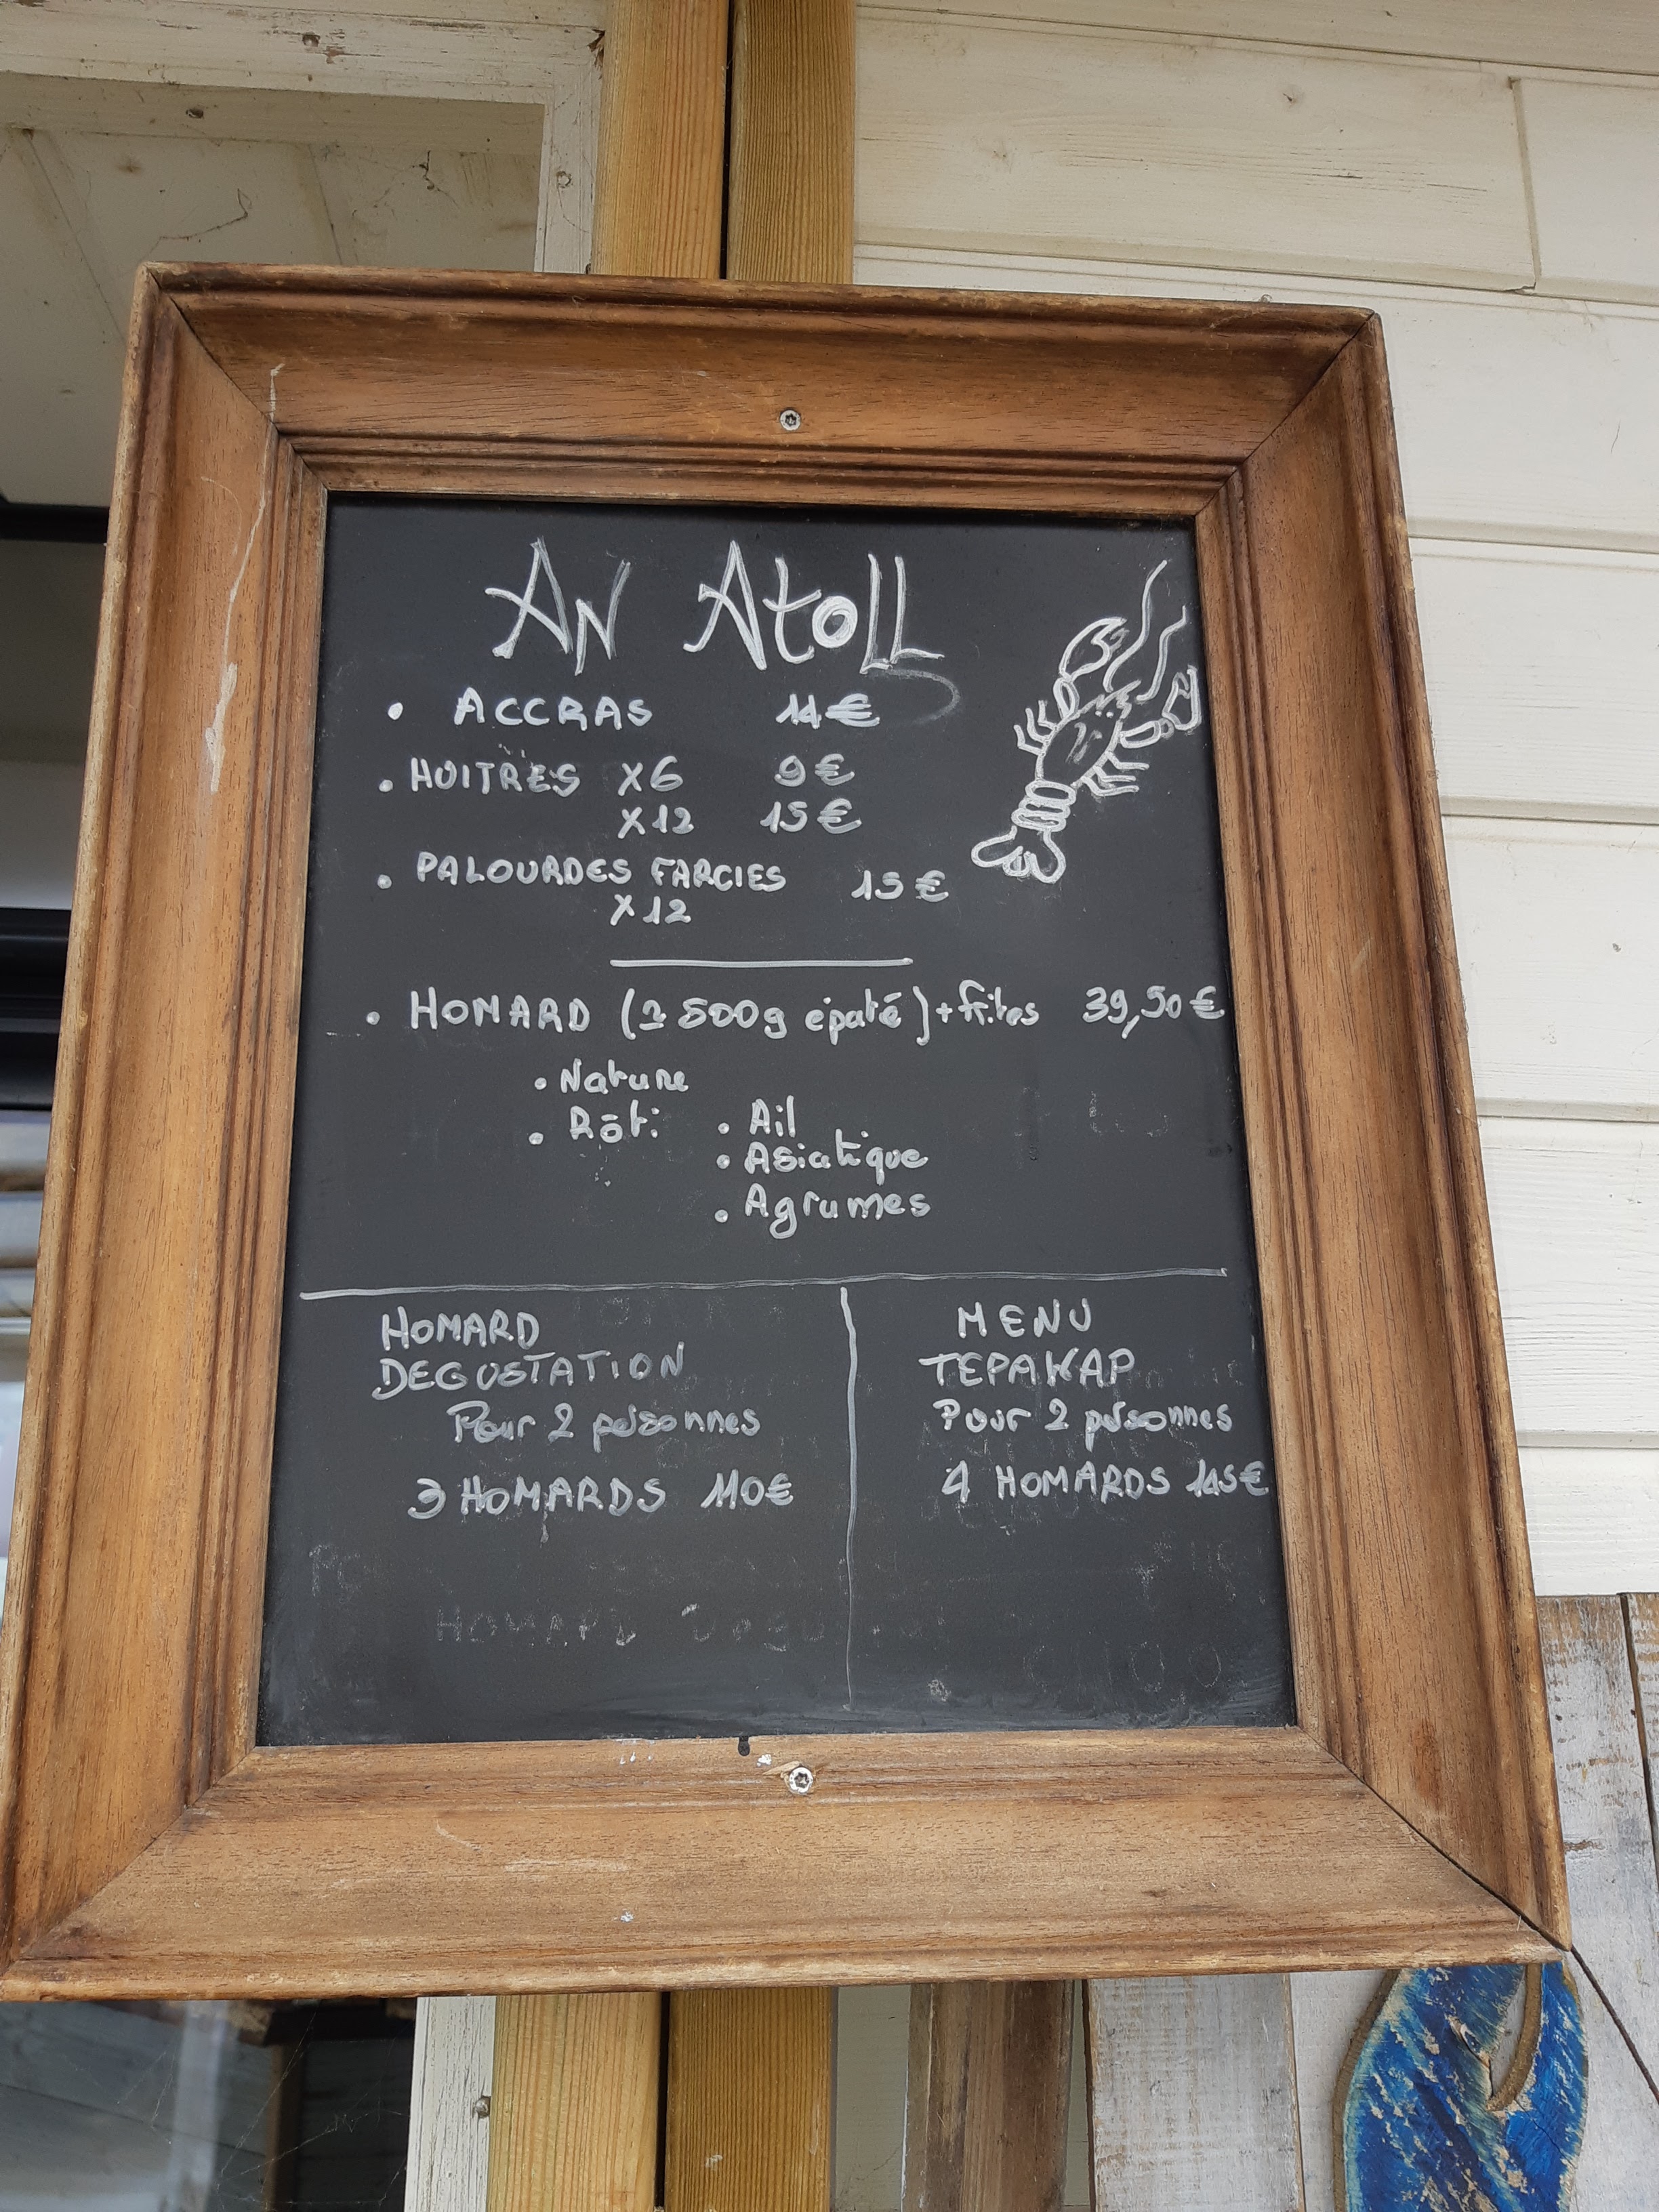 AN Atoll
• ACCRAS 14€
• HUITRES X6 9€
X12 15€
• PALOURDES FARCIES 15€
X12
• HOMARD (± 500g épaté) + frites 39,50€
• Nature
• Rôti • Ail
• Asiatique
• Agrumes
HOMARD
DEGUSTATION
Pour 2 personnes
3 HOMARDS 110€
MENU
TEPAKAP
Pour 2 personnes
4 HOMARDS 145€
HOMARD